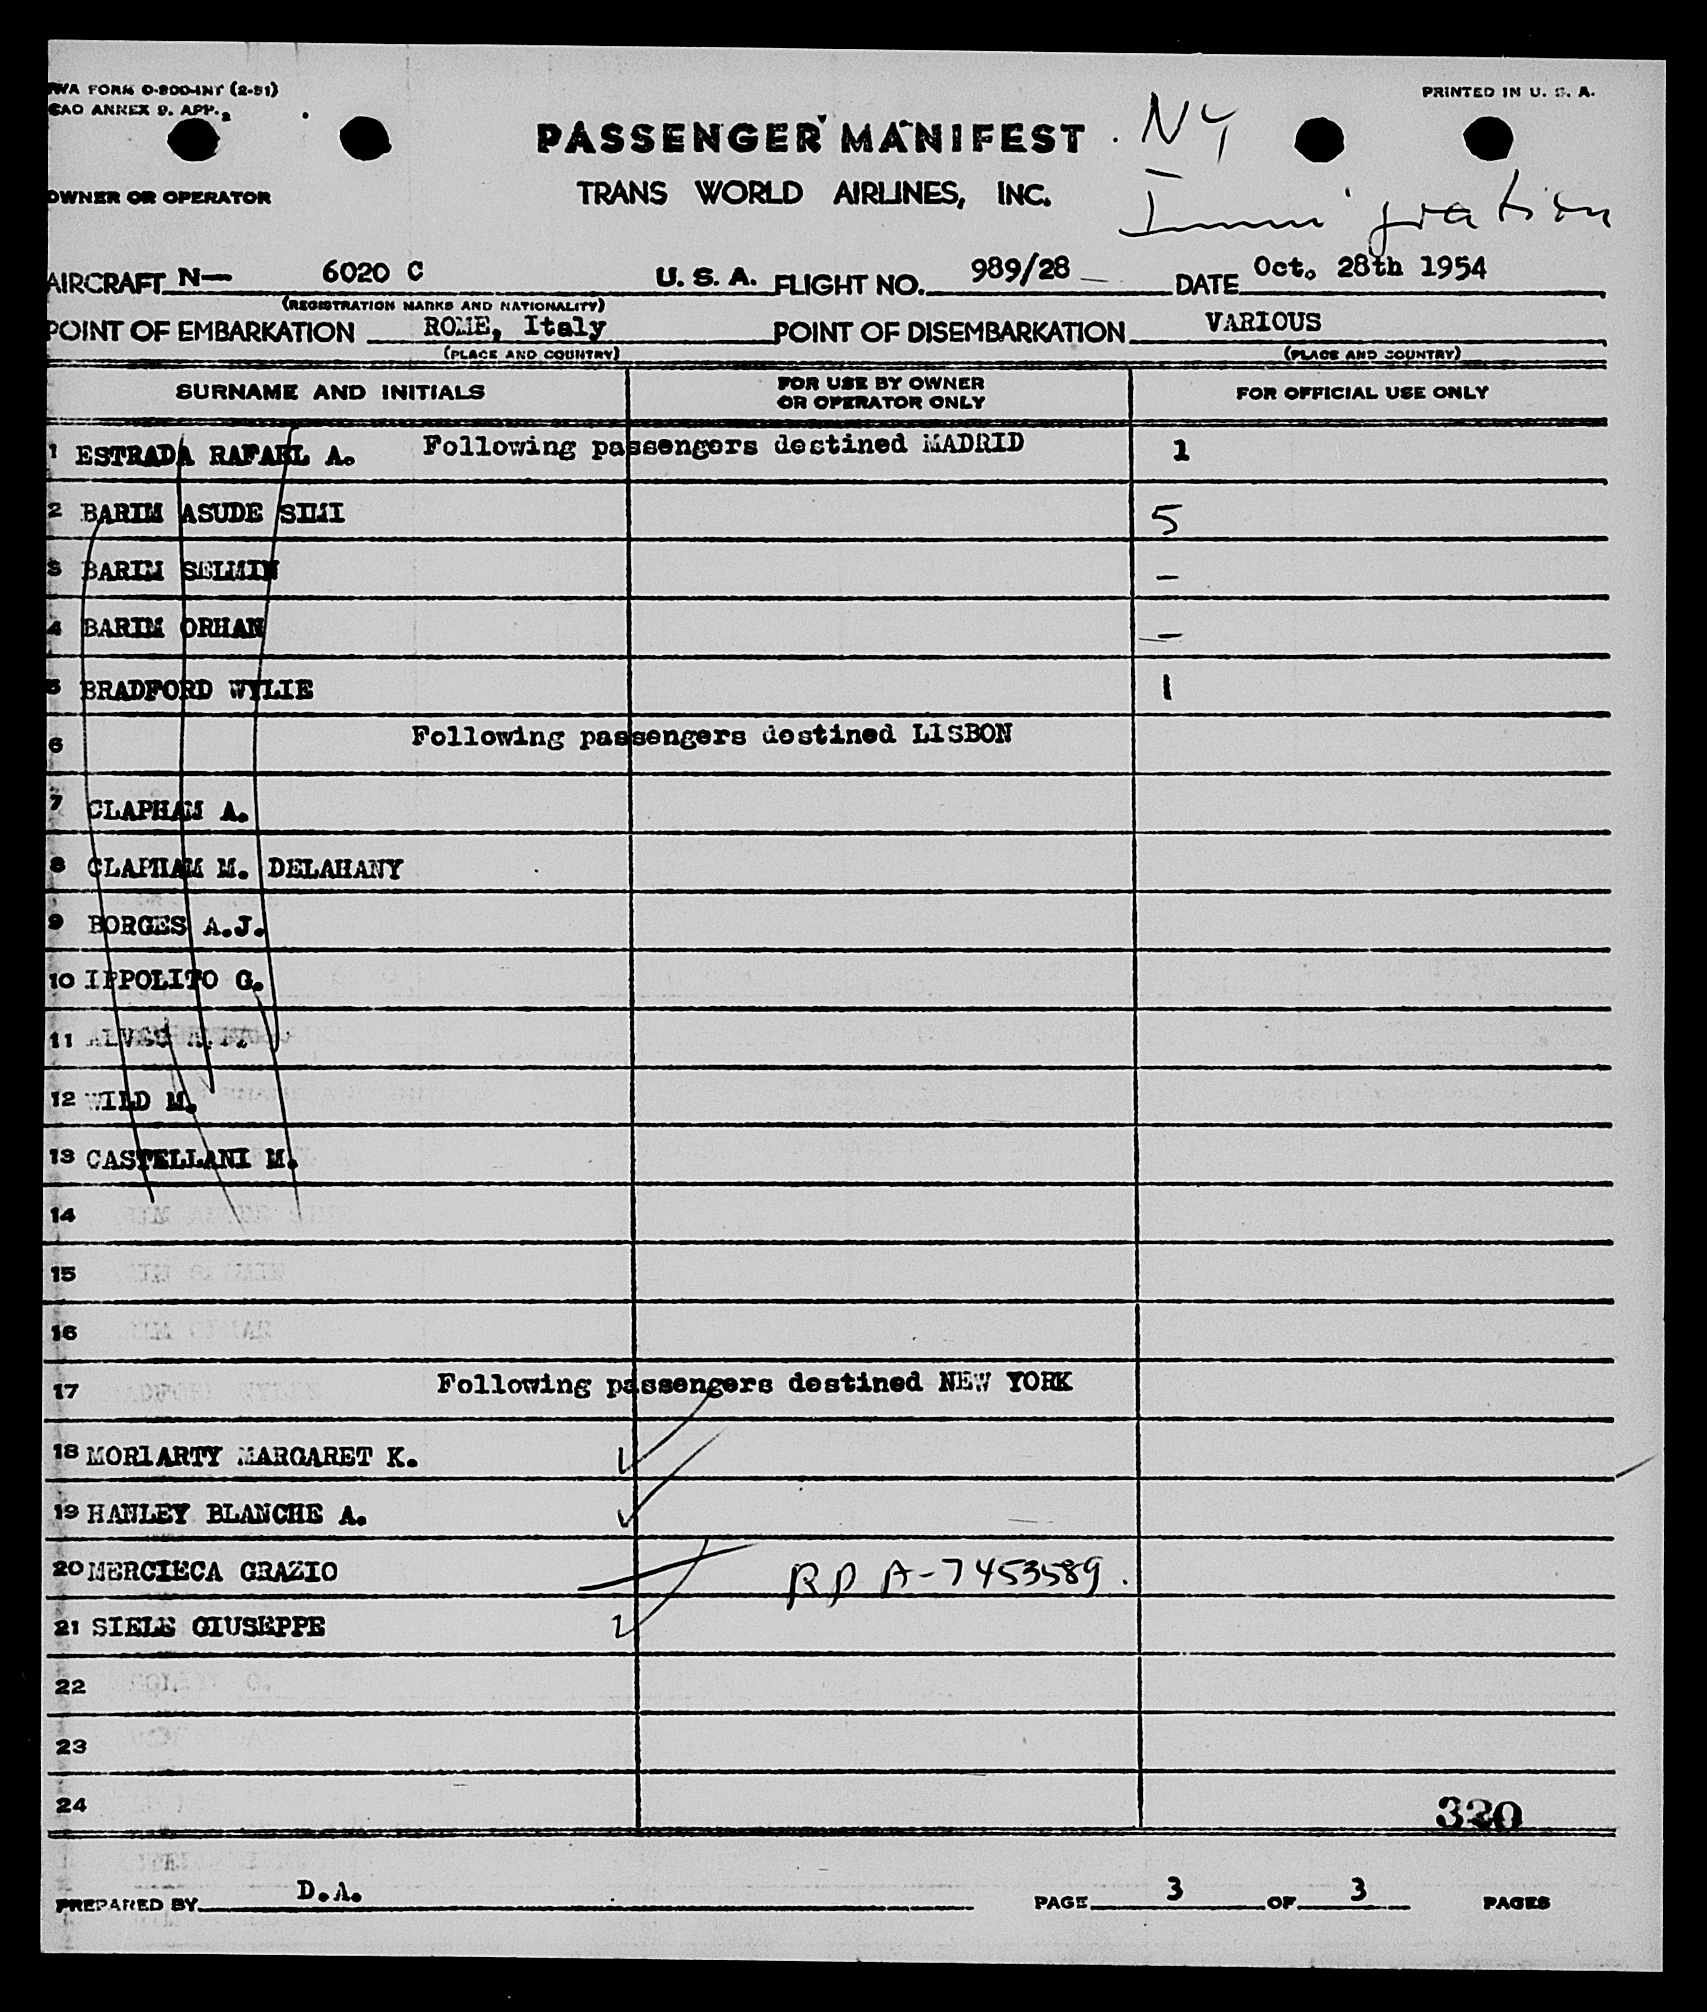 TWA FORM O-800-INT (2-51)
ICAO ANNEX 9. APP. 2
PRINTED IN U. S. A.
PASSENGER MANIFEST
NY
TRANS WORLD AIRLINES, INC.
Immigration
OWNER OR OPERATOR
AIRCRAFT N— 6020 C U. S. A. FLIGHT NO. 989/28 DATE Oct. 28th 1954
(REGISTRATION MARKS AND NATIONALITY)
POINT OF EMBARKATION ROME, Italy POINT OF DISEMBARKATION VARIOUS
(PLACE AND COUNTRY) (PLACE AND COUNTRY)
SURNAME AND INITIALS FOR USE BY OWNER OR OPERATOR ONLY FOR OFFICIAL USE ONLY
1 ESTRADA RAFAEL A. Following passengers destined MADRID 1
2 BARIM ASUDE SIMI 5
3 BARIM SELMIN –
4 BARIM ORHAN –
5 BRADFORD WYLIE 1
6 Following passengers destined LISBON
7 CLAPHAM A.
8 CLAPHAM M. DELAHANY
9 BORGES A.J.
10 IPPOLITO G.
11 ALVES
12 WILD M.
13 CASTELLANI M.
14
15
16
17 Following passengers destined NEW YORK
18 MORIARTY MARGARET K.
19 HANLEY BLANCHE A.
20 MERCIECA GRAZIO RP A-7453589.
21 SIELE GIUSEPPE
22
23
24
320
PREPARED BY D.A. PAGE 3 OF 3 PAGES